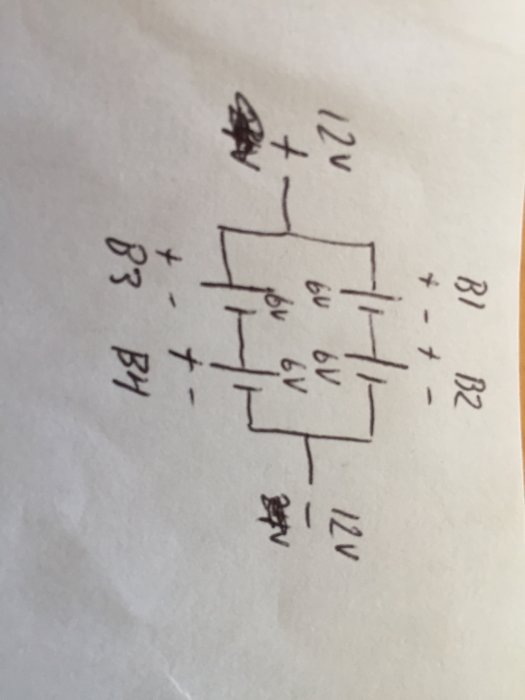 B1 B2
+ - + -
12V
+
6V 6V
6V 6V
12V
-
+ - + -
B3 B4